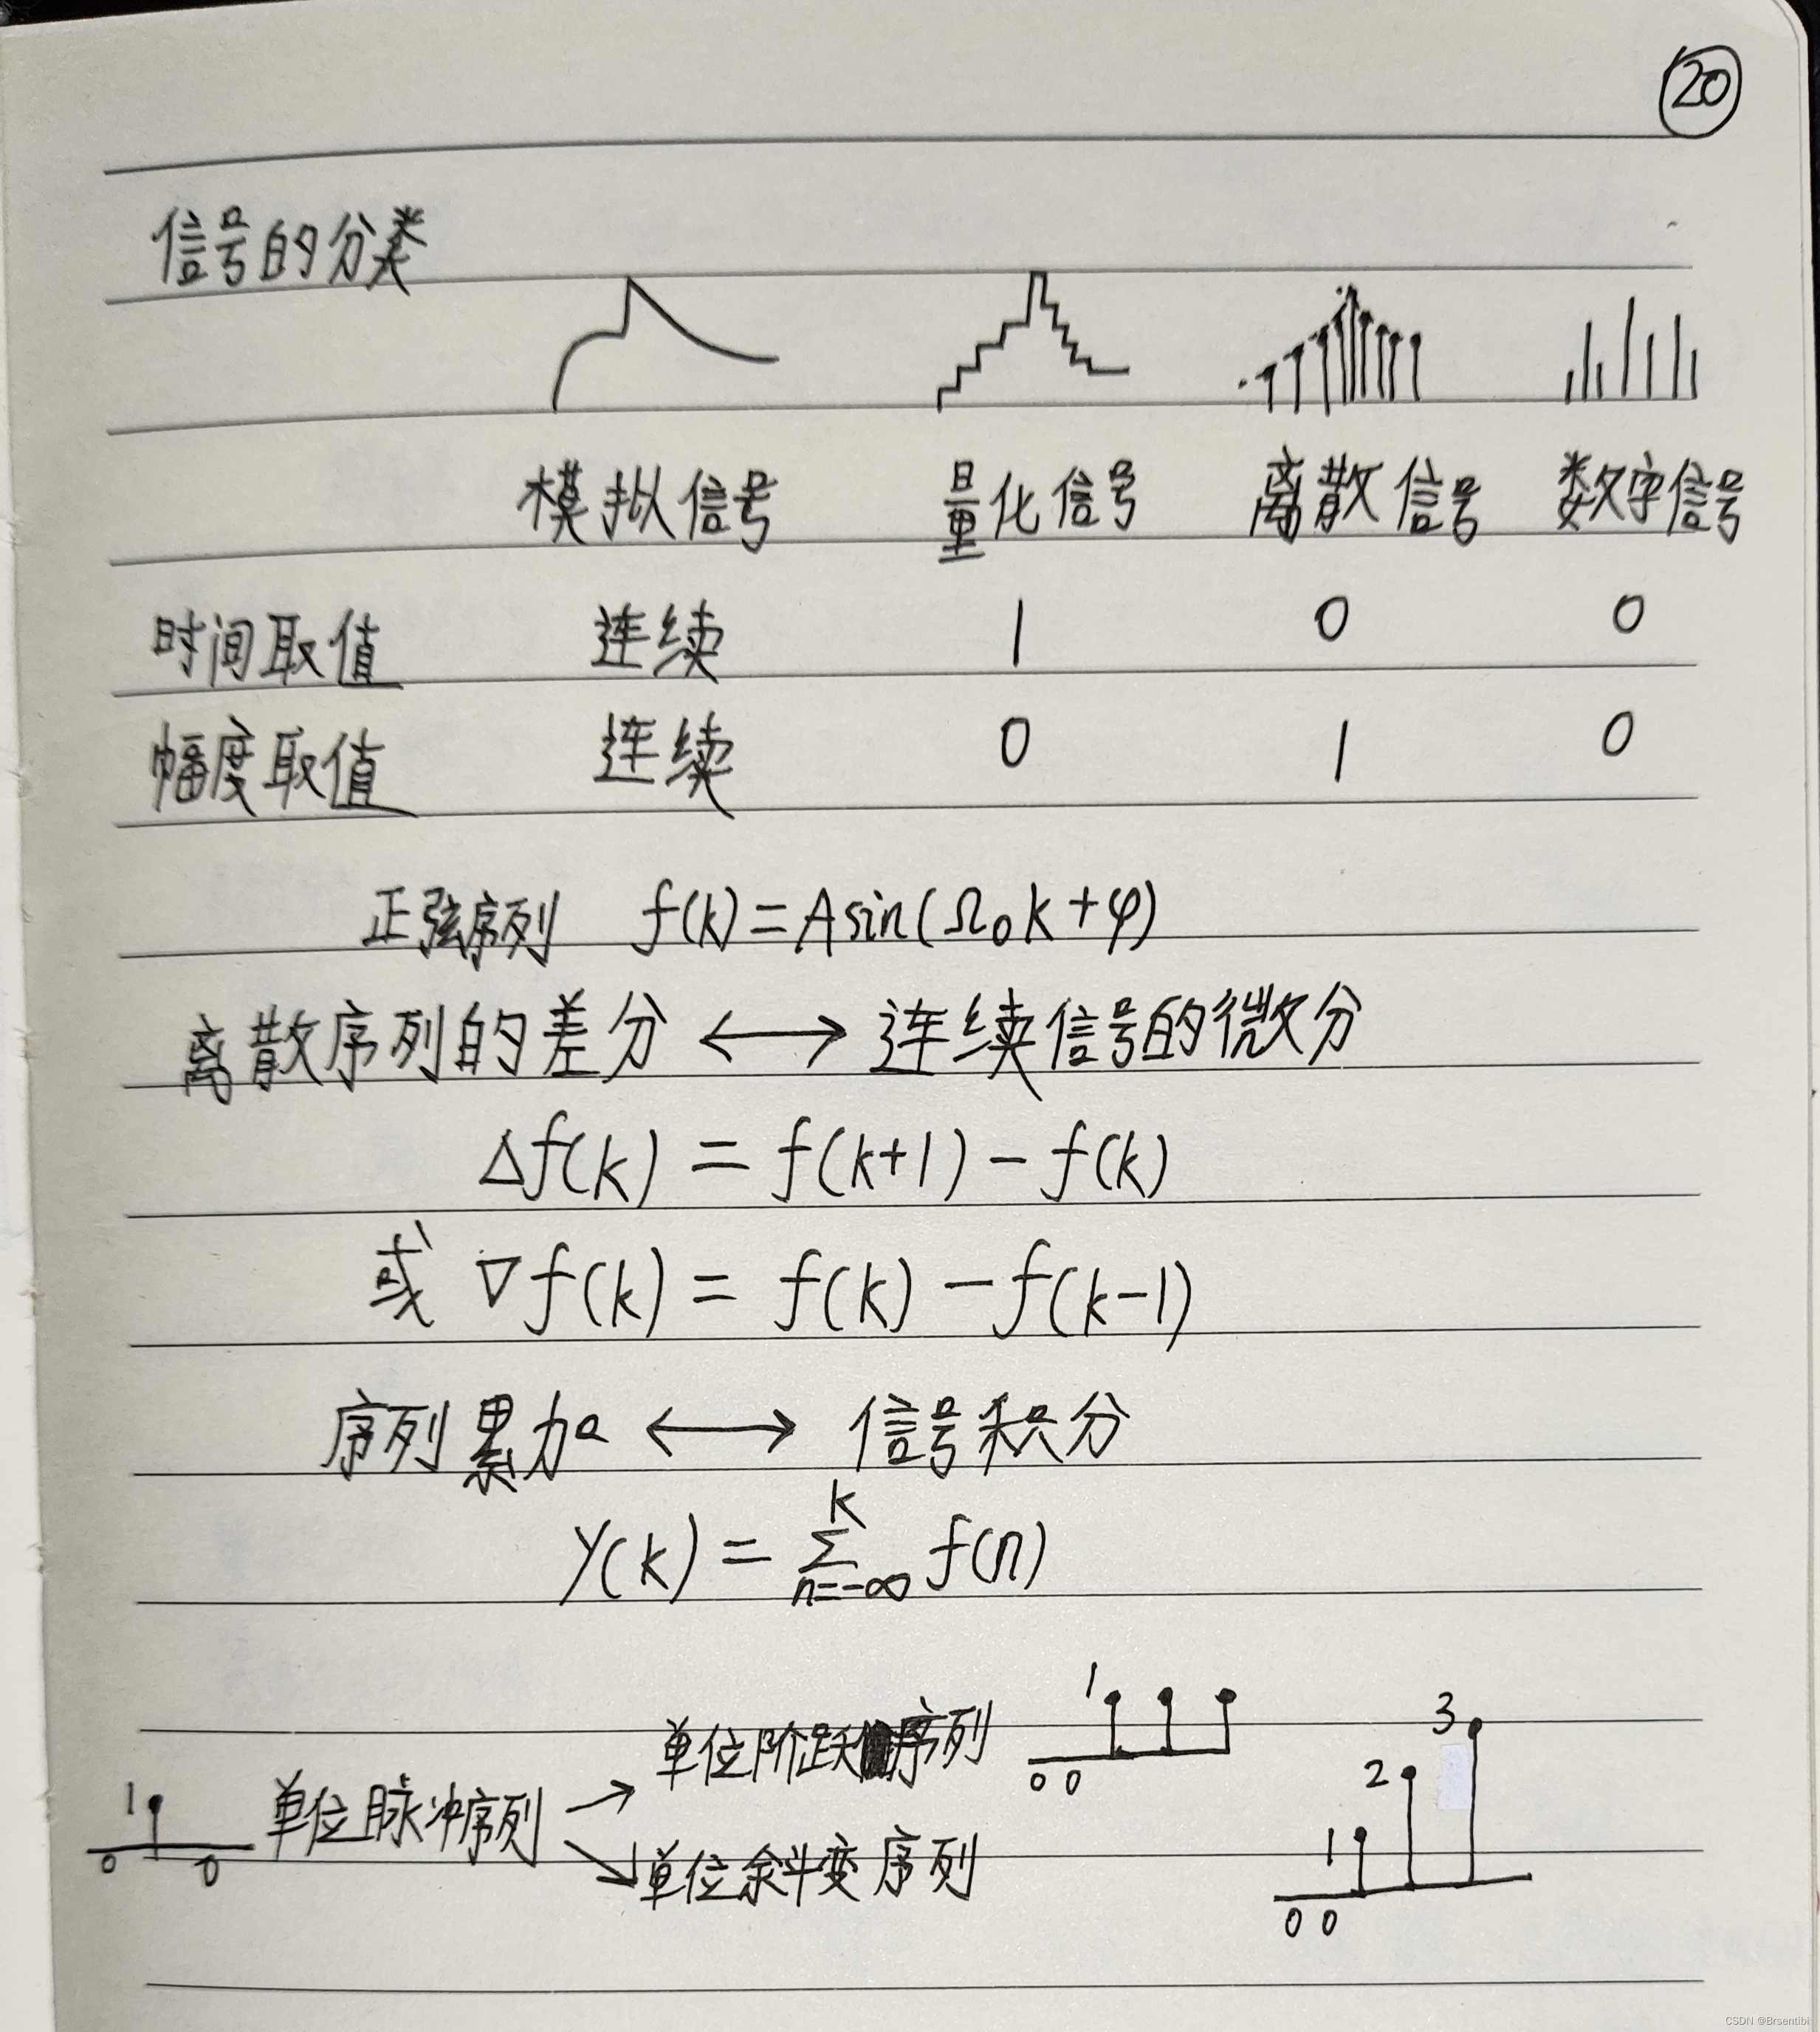 20
信号的分类
模拟信号 量化信号 离散信号 数字信号
时间取值 连续 1 0 0
幅度取值 连续 0 1 0
正弦序列 f(k)=Asin(Ω₀k+φ)
离散序列的差分 ⟷ 连续信号的微分
Δf(k) = f(k+1) - f(k)
或 ∇f(k) = f(k) - f(k-1)
序列累加 ⟷ 信号积分
y(k) = ∑_{n=-∞}^{k} f(n)
1 0 0 单位脉冲序列
→ 单位阶跃序列 1 0 0
↘ 单位斜变序列 1 2 3 0 0
CSDN @Brsentibi